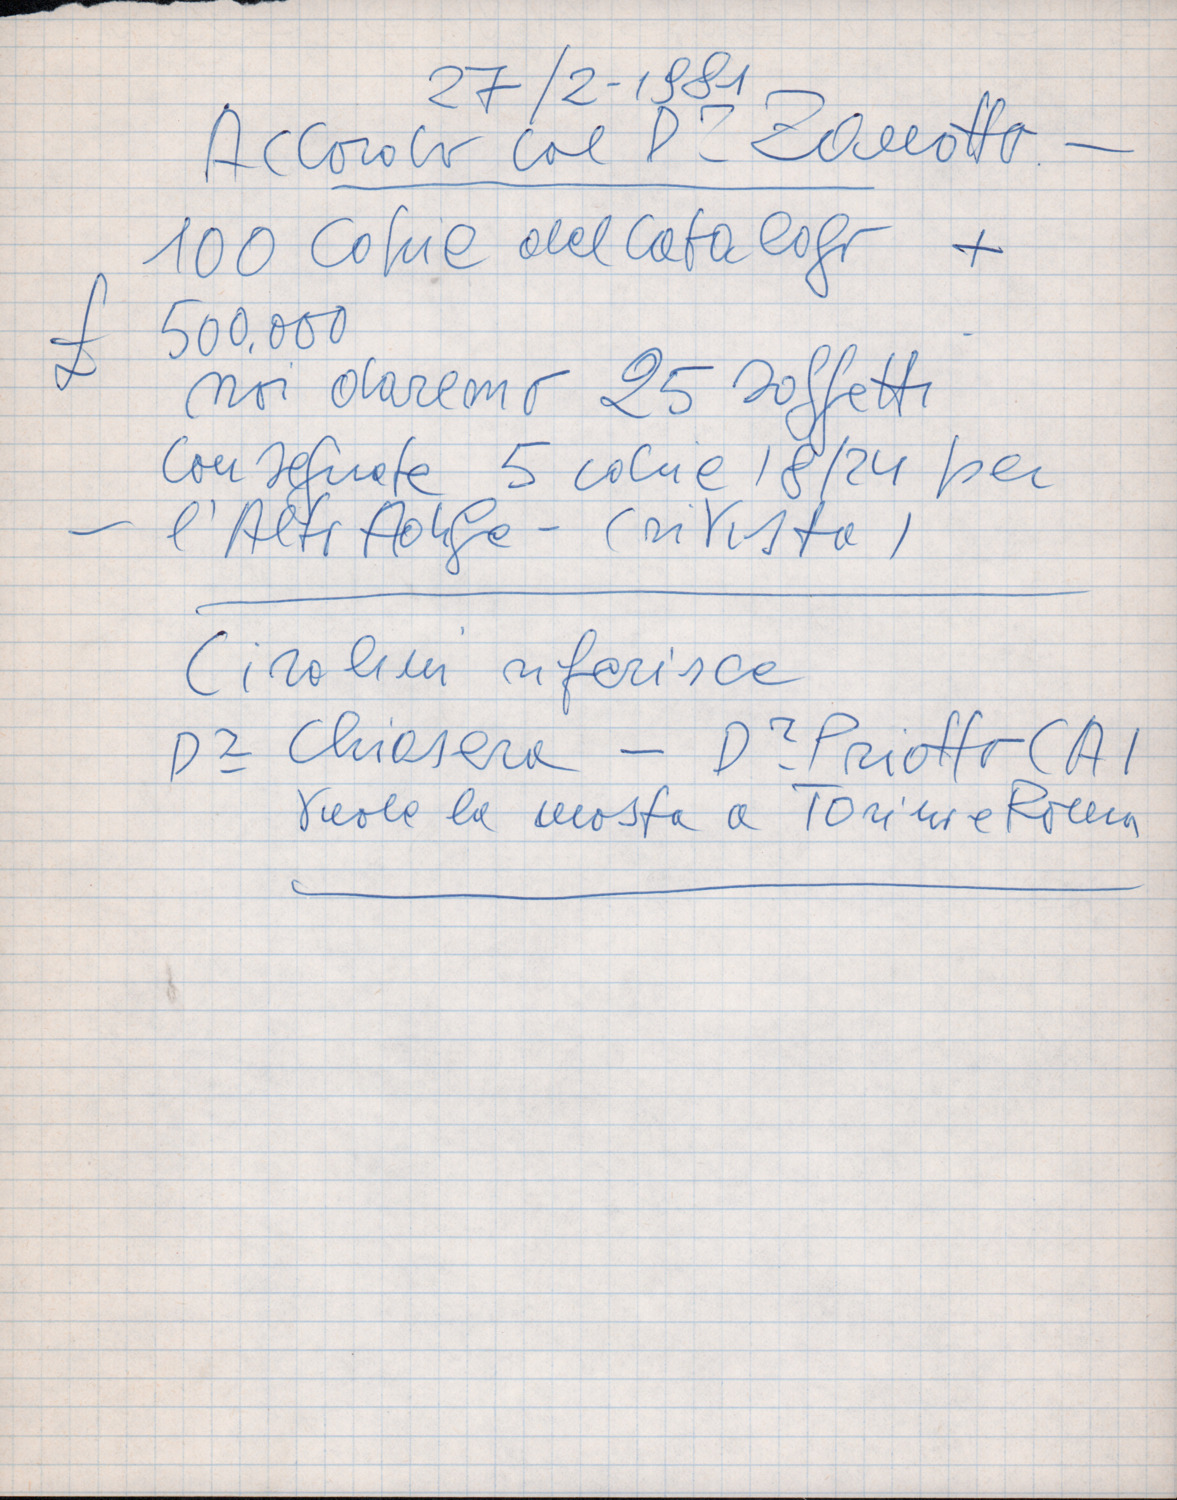 27/2-1981
Accordo col Dr Zanotto. —
100 Copie del Catalogo +
£ 500.000
noi daremo 25 soggetti
Consegnate 5 copie 18/24 per
— l'Alto Adige - (rivista)
Cirolini riferisce
Dr Chiasera — Dr Priotto CAI
vuole la mostra a Torino e Roma